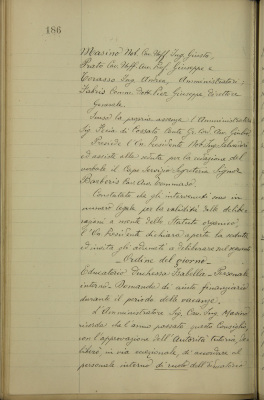 186
Masino Not. Cav. Uff. Ing. Giusto,
Prato Cav. Uff. Giuseppe e
Terasso Ing. Andrea, Amministratori;
Fabris Comm. Dott. Giuseppe Direttore
Generale
Scusò la propria assenza l'Amministratore
Sig. di Cossato Conte Gr. Cav.
Presiede l'On. Presidente
ed assiste alla seduta, per la redazione del
verbale il Capo Servizio Segreteria Signor
Barberis Cav. Tommaso.
Constatato che gli intervenuti sono in
numero legale per la validità delle delibe-
razioni a mente dello Statuto organico,
l'On. Presidente dichiara aperta la seduta
ed invita gli adunati a deliberare sul seguente
Ordine del giorno
Educatorio Duchessa Isabella - Personale
interno - Domanda di aiuto finanziario
durante il periodo delle vacanze.
L'Amministratore Sig. Cav. Ing. Masino
ricorda che l'anno passato questo Consiglio,
con l'approvazione dell'Autorità tutoria, de-
liberò, in via eccezionale, di accordare al
personale interno di ruolo dell'Educatorio